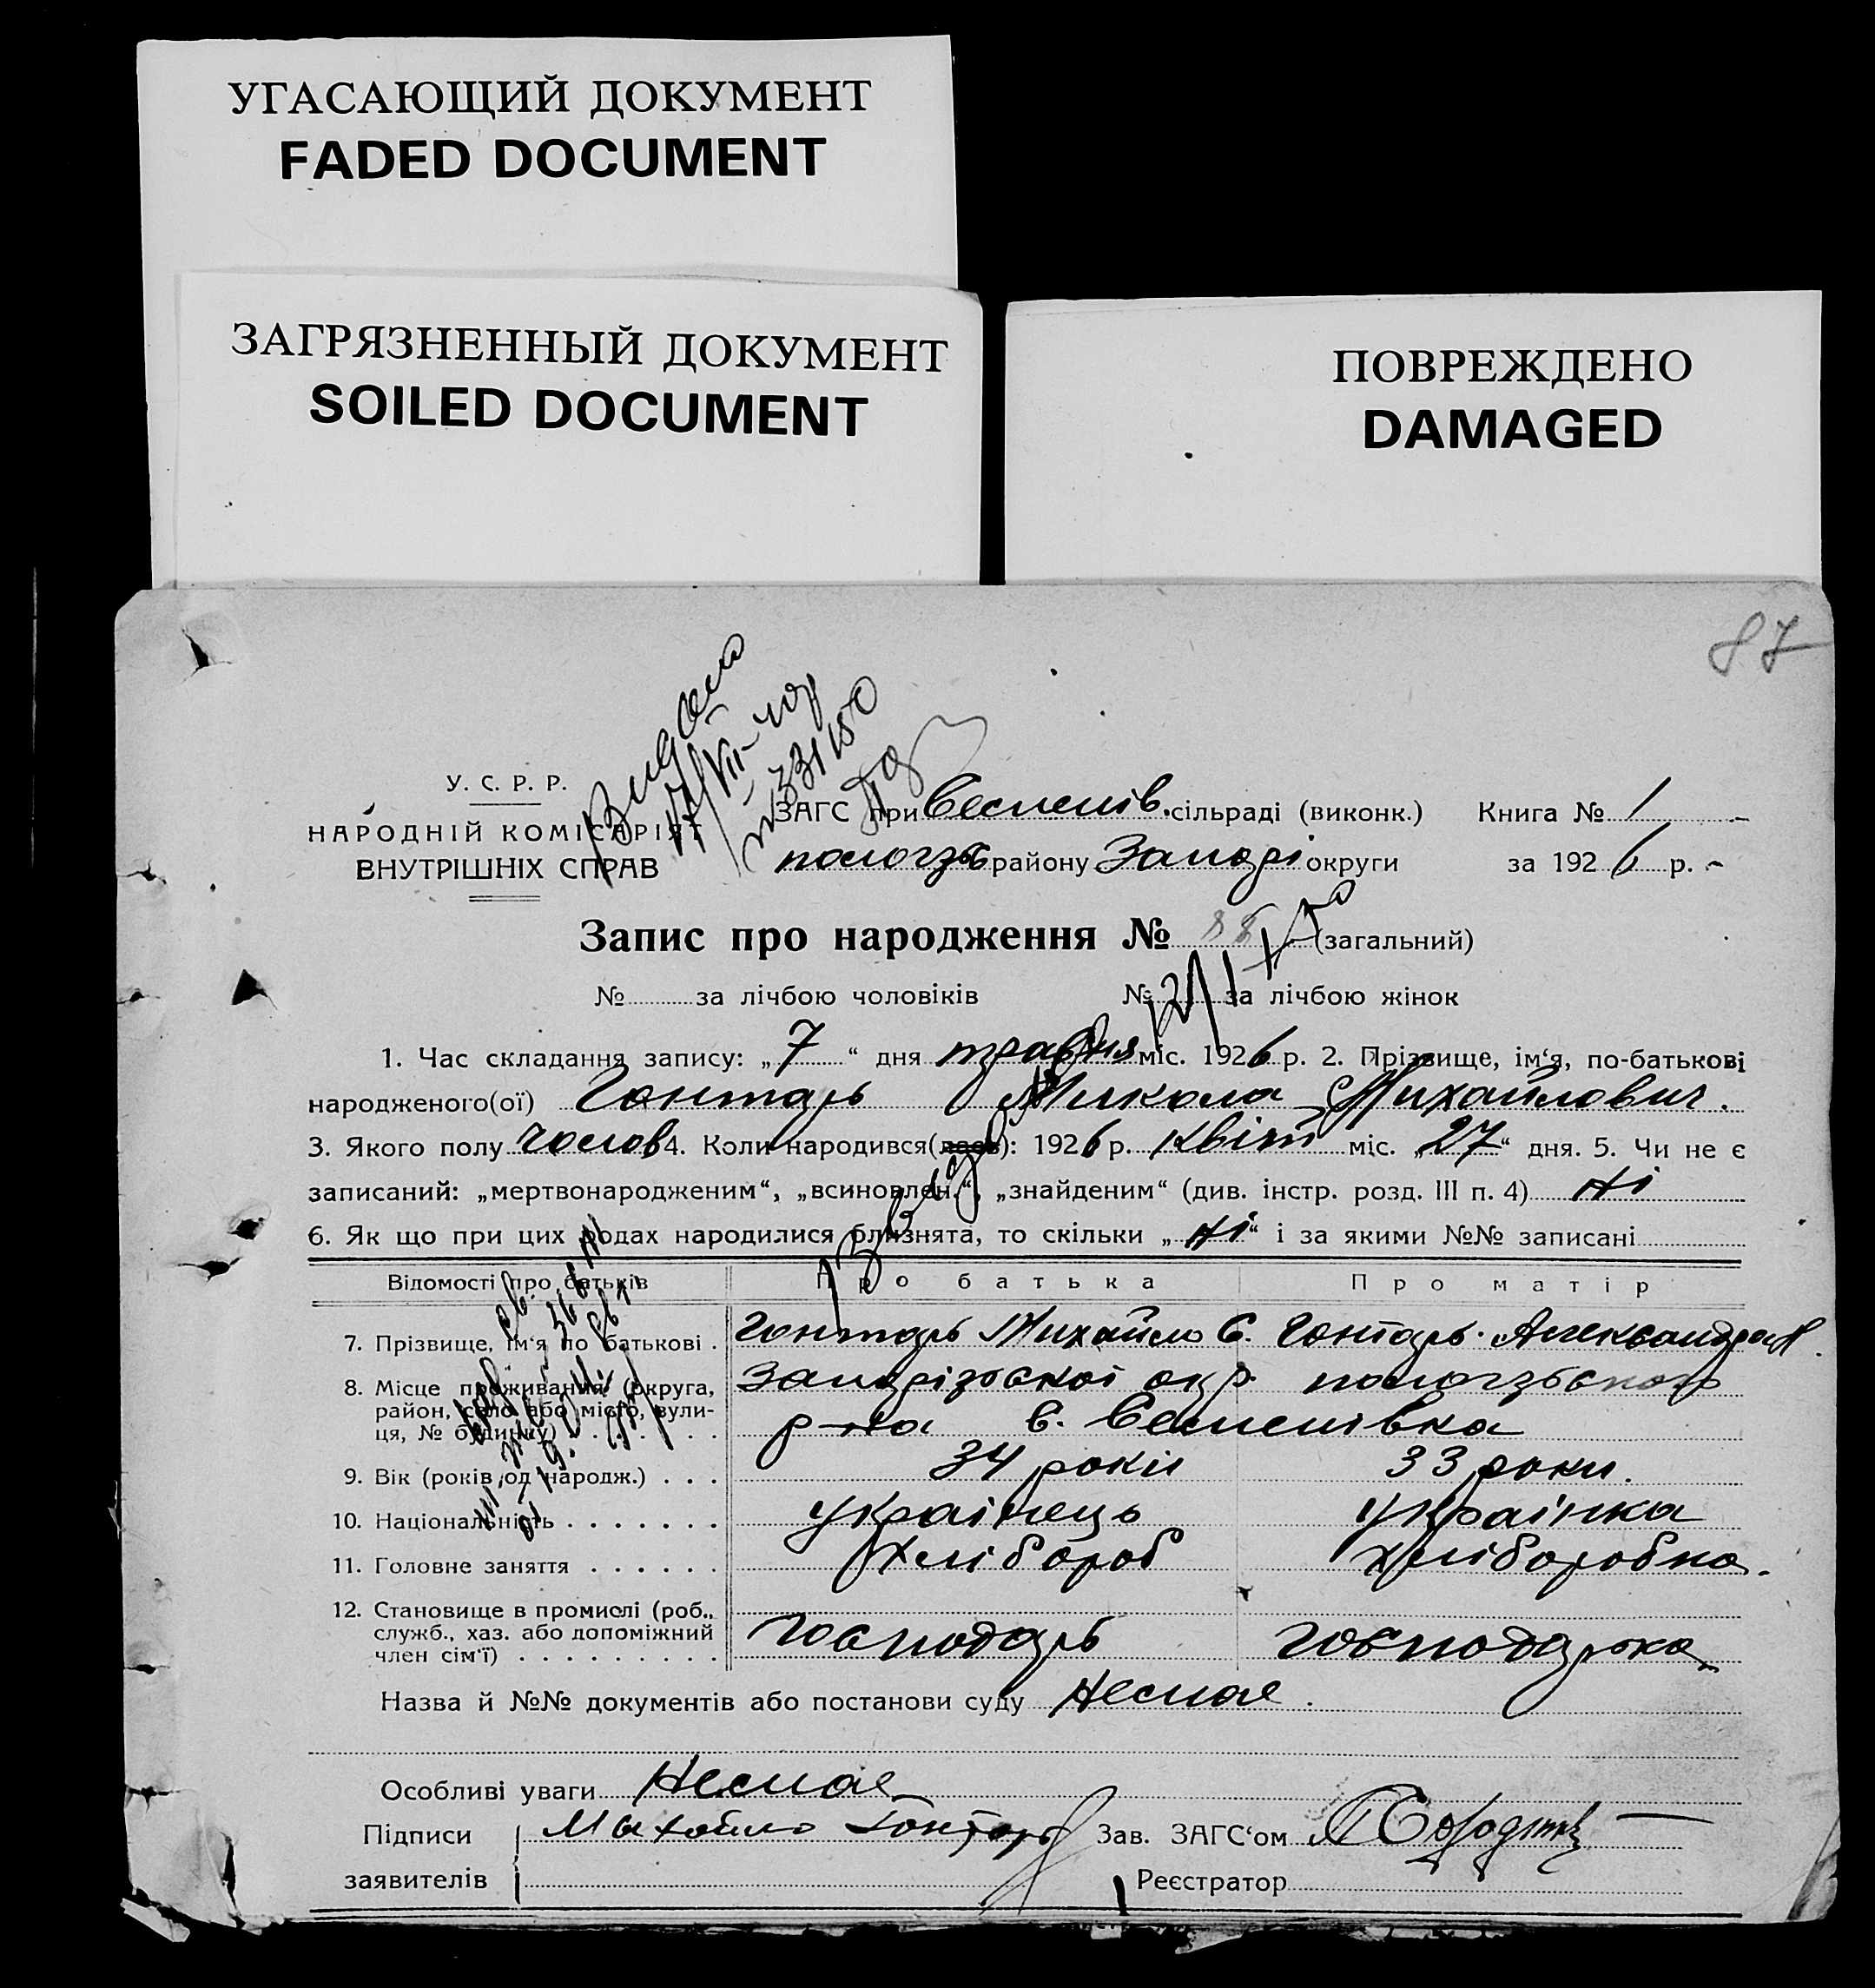 УГАСАЮЩИЙ ДОКУМЕНТ
FADED DOCUMENT
ЗАГРЯЗНЕННЫЙ ДОКУМЕНТ
SOILED DOCUMENT
ПОВРЕЖДЕНО
DAMAGED
87
У. С. Р. Р.
НАРОДНІЙ КОМІСАРІЯТ
ВНУТРІШНІХ СПРАВ
ЗАГС при сільраді (виконк.) Книга № 1
району Запорі округи за 1926 р.
Запис про народження № 88 (загальний)
№ за лічбою чоловіків № за лічбою жінок
1. Час складання запису: „7“ дня травня міс. 1926 р. 2. Прізвище, ім‘я, по-батькові
народженого(ої) Гонтарь Микола Михайлович.
3. Якого полу чолов 4. Коли народився(лась): 1926 р. квіт міс. „27“ дня. 5. Чи не є
записаний: „мертвонародженим“, „всиновлен.“, „знайденим“ (див. інстр. розд. III п. 4) Ні
6. Як що при цих родах народилися близнята, то скільки „Ні“ і за якими №№ записані
Відомості про батьків Про батька Про матір
7. Прізвище, ім‘я по батькові . Гонтарь Михайло Є. Гонтарь Александра
8. Місце проживання (округа, район, село або місто, вулиця, № будинку) окр.
р-на с.
9. Вік (років од народж.) . . . 34 роки 33 роки.
10. Національність . . . . . . . українець українка
11. Головне заняття . . . . . . хлібороб хліборобка.
12. Становище в промислі (роб., служб., хаз. або допоміжний член сім‘ї) . . . . . . . . . господарь господарька
Назва й №№ документів або постанови суду Немає.
Особливі уваги Немає
Підписи Михайло Гонтарь Зав. ЗАГС‘ом
заявителів Реєстратор